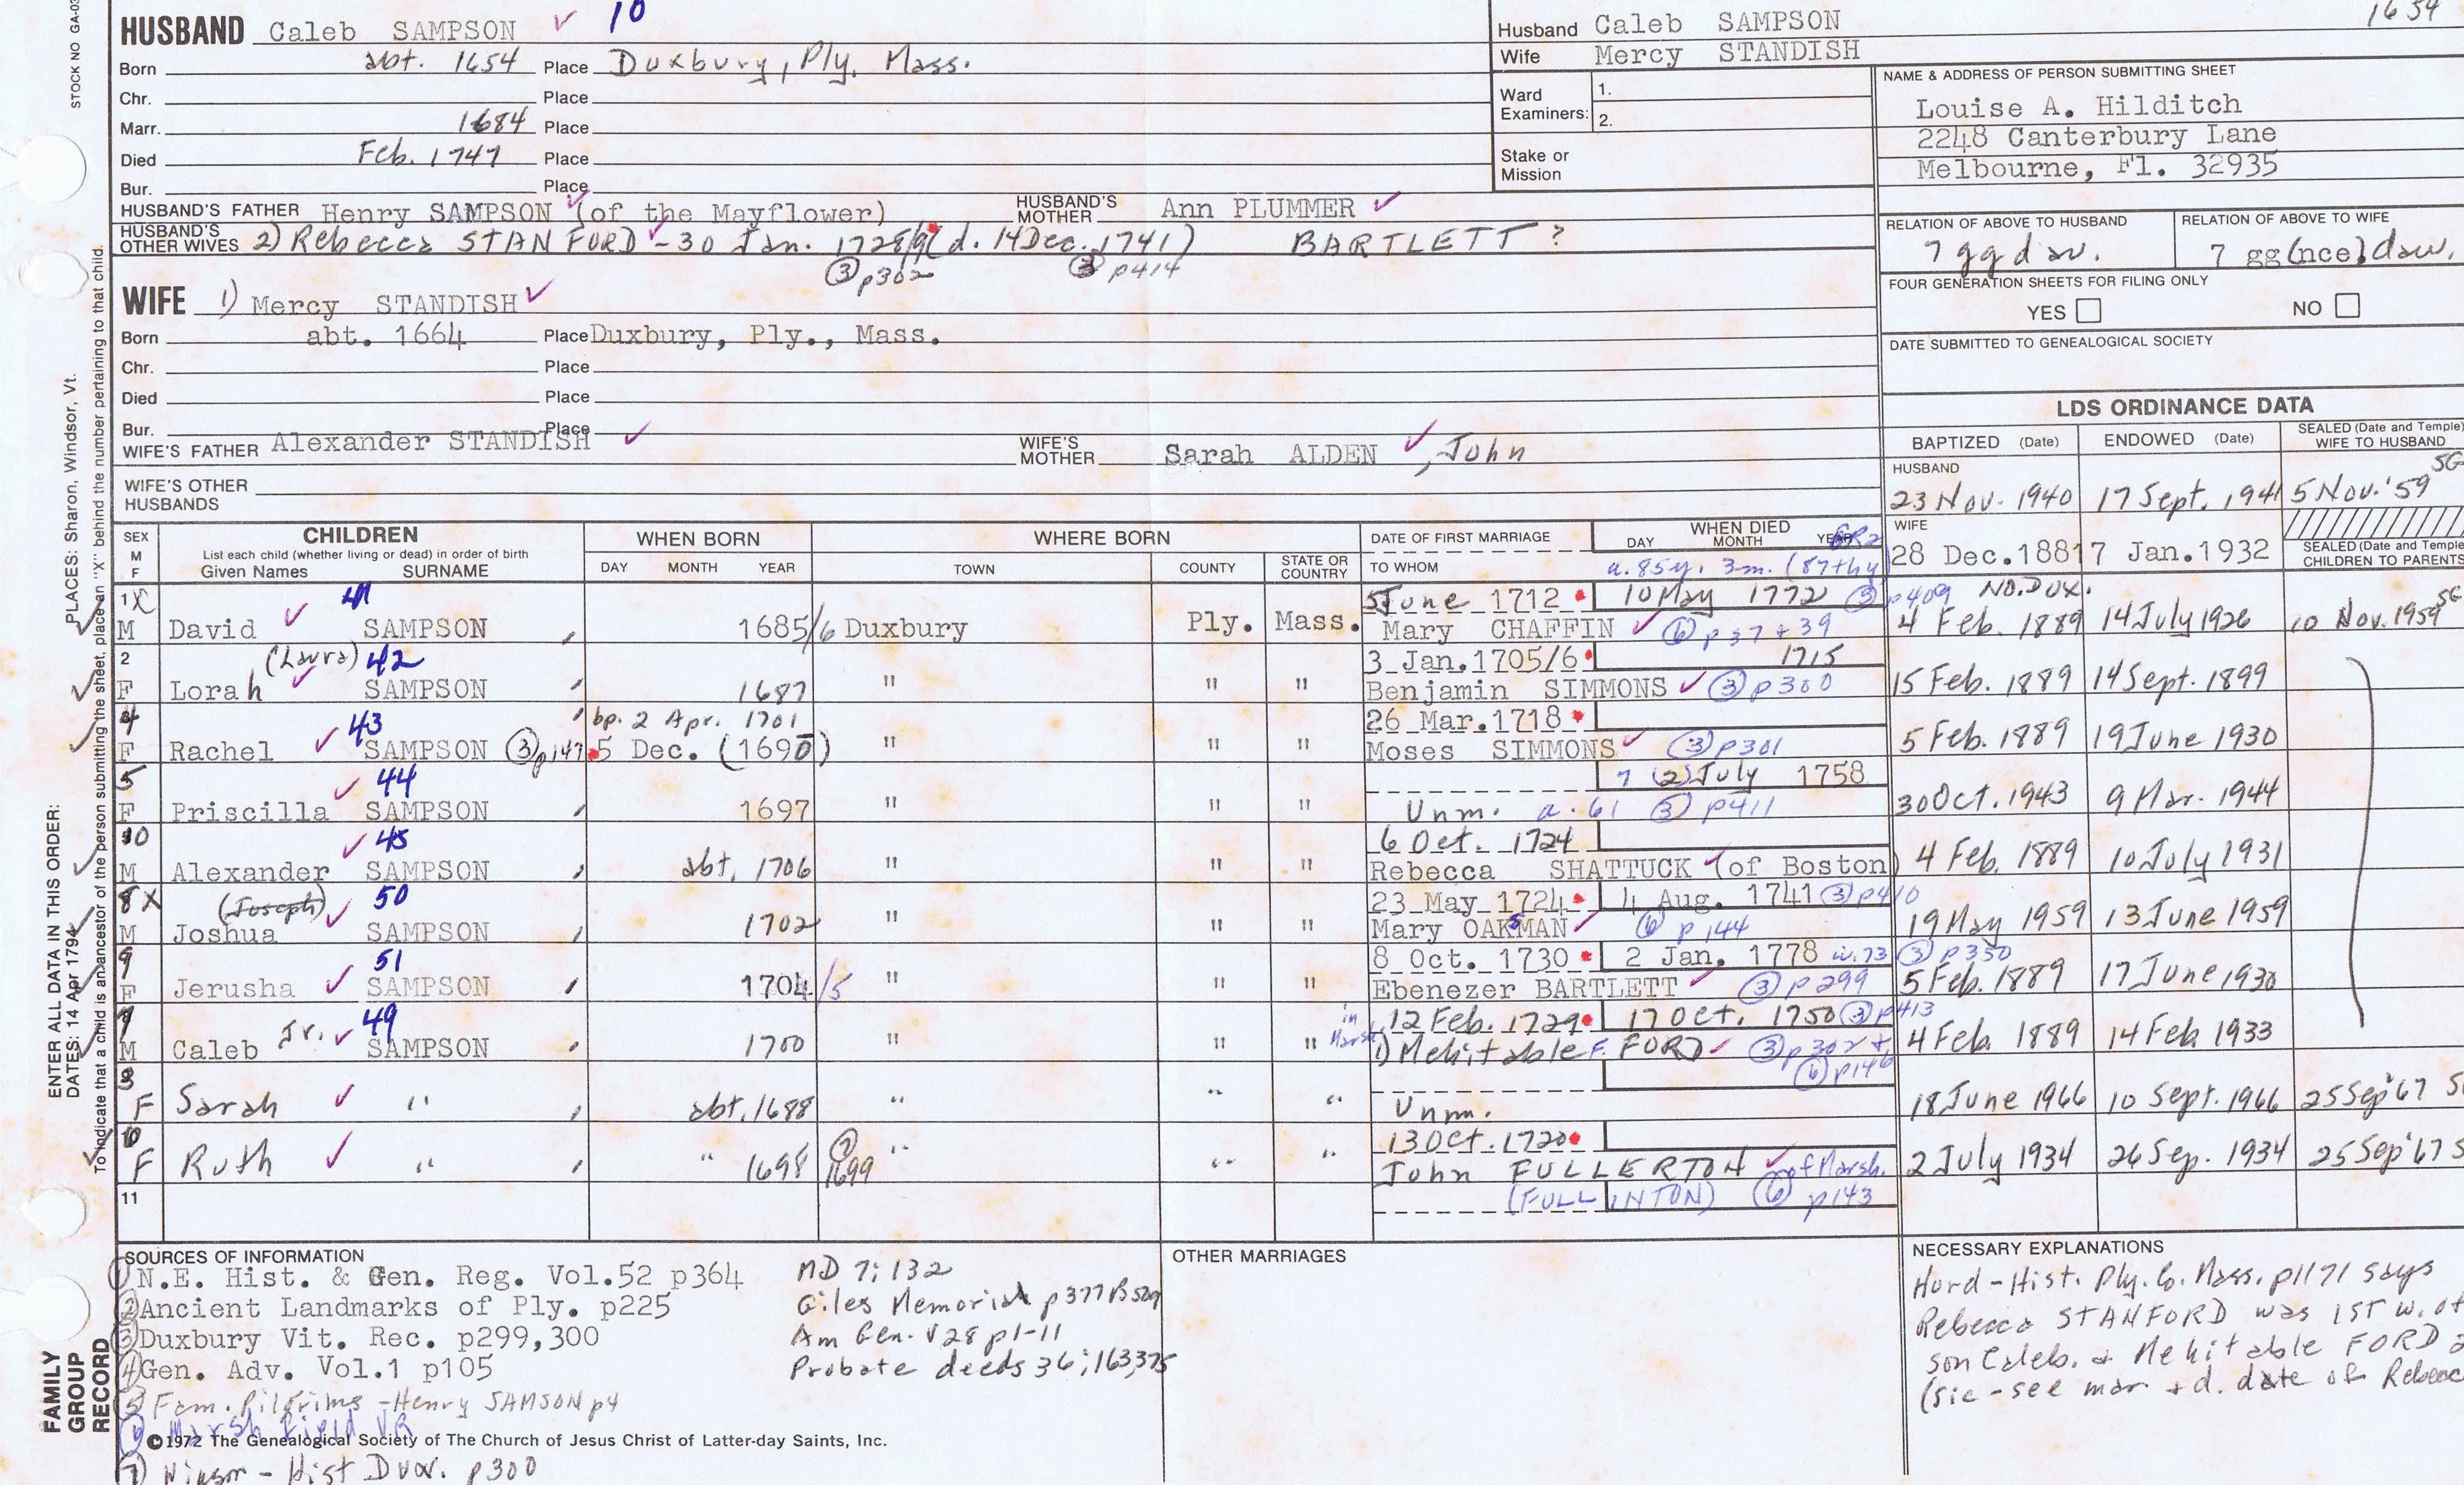 STOCK NO GA-03
HUSBAND Caleb SAMPSON ✓ 10
Born abt. 1654 Place Duxbury, Ply. Mass.
Chr. Place
Marr. 1684 Place
Died Feb. 1747 Place
Bur. Place
HUSBAND'S FATHER Henry SAMPSON (of the Mayflower) HUSBAND'S MOTHER Ann PLUMMER ✓
HUSBAND'S OTHER WIVES 2) Rebecca STANFORD - 30 Jan. 1728/9 (d. 14 Dec. 1741) BARTLETT ?
③ p302 ③ p414
WIFE 1) Mercy STANDISH ✓
Born abt. 1664 Place Duxbury, Ply., Mass.
Chr. Place
Died Place
Bur. Place
WIFE'S FATHER Alexander STANDISH ✓ WIFE'S MOTHER Sarah ALDEN ✓, John
WIFE'S OTHER HUSBANDS
Husband Caleb SAMPSON 1654
Wife Mercy STANDISH
Ward Examiners: 1.
2.
Stake or Mission
NAME & ADDRESS OF PERSON SUBMITTING SHEET
Louise A. Hilditch
2248 Canterbury Lane
Melbourne, Fl. 32935
RELATION OF ABOVE TO HUSBAND RELATION OF ABOVE TO WIFE
7 ggdau. 7 gg(nce)dau.
FOUR GENERATION SHEETS FOR FILING ONLY
YES NO
DATE SUBMITTED TO GENEALOGICAL SOCIETY
LDS ORDINANCE DATA
BAPTIZED (Date) ENDOWED (Date) SEALED (Date and Temple) WIFE TO HUSBAND
HUSBAND SG
23 Nov. 1940 17 Sept. 1941 5 Nov. '59
WIFE
28 Dec. 1881 7 Jan. 1932 SEALED (Date and Temple) CHILDREN TO PARENTS
SEX M F CHILDREN List each child (whether living or dead) in order of birth Given Names SURNAME
WHEN BORN DAY MONTH YEAR
WHERE BORN TOWN COUNTY STATE OR COUNTRY
DATE OF FIRST MARRIAGE TO WHOM
WHEN DIED DAY MONTH YEAR
a. 85y. 3m. (87thy
1 X 41 5 June 1712 10 May 1772 ③ p409 NO. DUX.
M David ✓ SAMPSON 1685/6 Duxbury Ply. Mass. Mary CHAFFIN ✓ ⑥ p37 + 39 4 Feb. 1889 14 July 1926 10 Nov. 1959 SG
2 (Laura) 42 3 Jan. 1705/6 1715
F Lorah ✓ SAMPSON 1687 " " " Benjamin SIMMONS ✓ ③ p300 15 Feb. 1889 14 Sept. 1899
4 43 bp. 2 Apr. 1701 26 Mar. 1718
F Rachel ✓ SAMPSON ③ p147 5 Dec. (1690) " " " Moses SIMMONS ✓ ③ p301 5 Feb. 1889 19 June 1930
5 44 7 (2) July 1758
F Priscilla ✓ SAMPSON 1697 " " " Unm. a. 61 ③ p411 30 Oct. 1943 9 Mar. 1944
10 45 6 Oct. 1724
M Alexander ✓ SAMPSON abt. 1706 " " " Rebecca SHATTUCK ✓ (of Boston) 4 Feb. 1889 10 July 1931
8 X (Joseph) 50 23 May 1724 4 Aug. 1741 ③ p410
M Joshua ✓ SAMPSON 1702 " " " Mary OAKMAN ✓ ⑥ p144 19 May 1959 13 June 1959
9 51 8 Oct. 1730 2 Jan. 1778 w. 73 ③ p350
F Jerusha ✓ SAMPSON 1704/5 " " " Ebenezer BARTLETT ✓ ③ p299 5 Feb. 1889 17 June 1930
7 49 in Marsh. 12 Feb. 1729 17 Oct. 1750 ③ p413
M Caleb Jr. ✓ SAMPSON 1700 " " " 1) Mehitable F. FORD ✓ ③ p302 + ⑥ p146 4 Feb. 1889 14 Feb 1933
3
F Sarah ✓ " abt. 1688 " " " Unm. 18 June 1966 10 Sept. 1966 25 Sep '67 S
10 13 Oct. 1720
F Ruth ✓ " " 1698 ⑦ 1699 " " " John FULLERTON ✓ of Marsh. 2 July 1934 26 Sep. 1934 25 Sep '67 S
11 (FULLINTON) ⑥ p143
SOURCES OF INFORMATION
① N.E. Hist. & Gen. Reg. Vol.52 p364
② Ancient Landmarks of Ply. p225
③ Duxbury Vit. Rec. p299,300
④ Gen. Adv. Vol.1 p105
⑤ Fam. Pilgrims - Henry SAMSON p4
⑥ Marshfield VR
©1972 The Genealogical Society of The Church of Jesus Christ of Latter-day Saints, Inc.
⑦ Winsor - Hist Dux. p300
MD 7; 132
Giles Memorial p377
Am Gen. V28 p1-11
Probate deeds 36; 163, 375
OTHER MARRIAGES
NECESSARY EXPLANATIONS
Hurd - Hist. Ply. Co. Mass. p1171 says
Rebecca STANFORD was 1ST w. of
son Caleb. + Mehitable FORD 2
(sic - see mar + d. date of Rebecc
ENTER ALL DATA IN THIS ORDER:
DATES: 14 Apr 1794 PLACES: Sharon, Windsor, Vt.
To indicate that a child is an ancestor of the person submitting the sheet, place an "X" behind the number pertaining to that child.
FAMILY GROUP RECORD